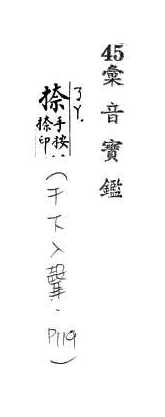 45彙音寶鑑
捺ㄋㄚ.
手按
捺印
(干下入聲.P119)